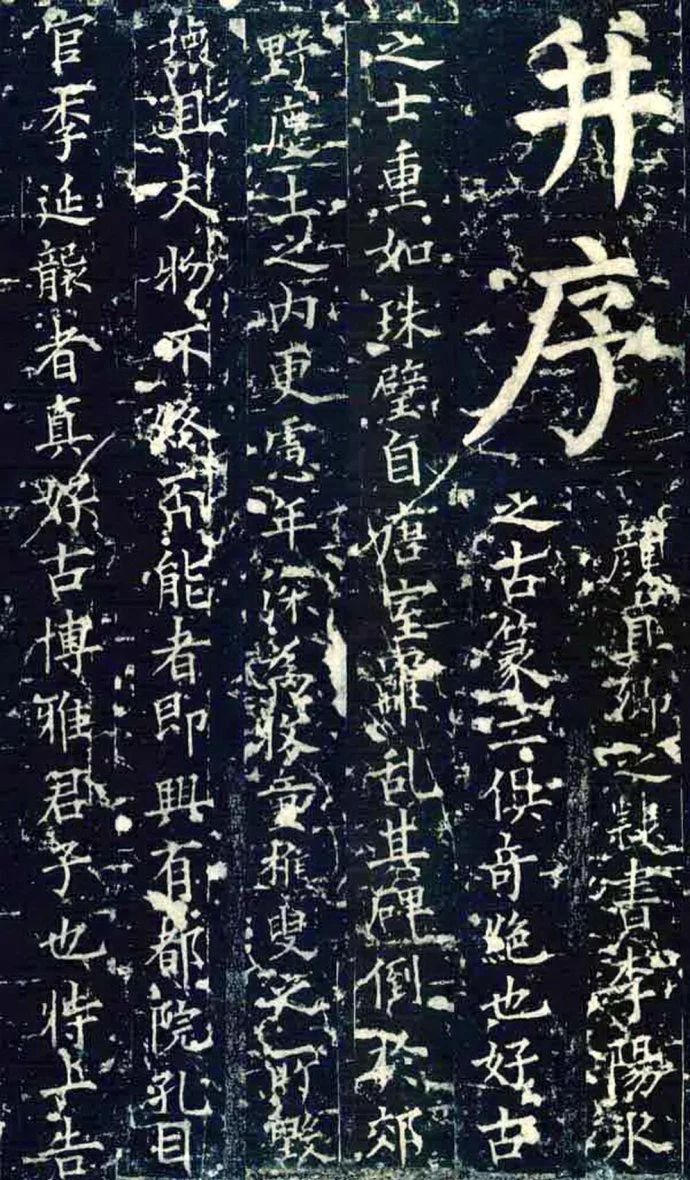 并序
顔真卿之隸書李陽冰
之古篆二俱奇絶也好古
之士重如珠璧自唐室離乱其碑倒於郊
野塵土之内更慮年深為牧童樵叟之所毀
壞且夫物不終否能者即興有都院孔目
官李延襲者真好古博雅君子也特上告